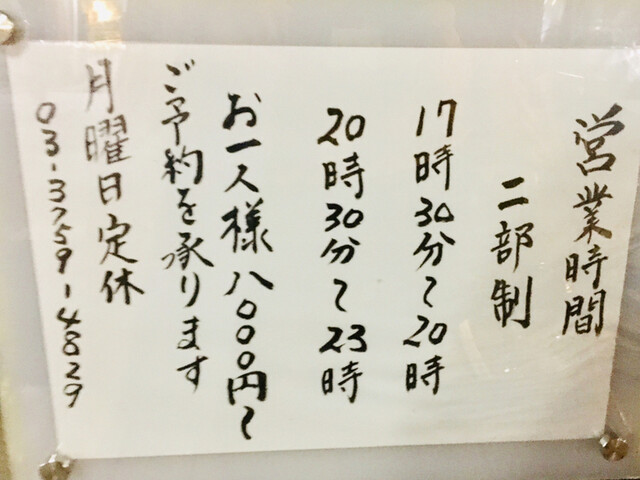 営業時間
二部制
17時30分〜20時
20時30分〜23時
お一人様八〇〇〇円〜
ご予約を承ります
月曜日定休
03-3759-4829